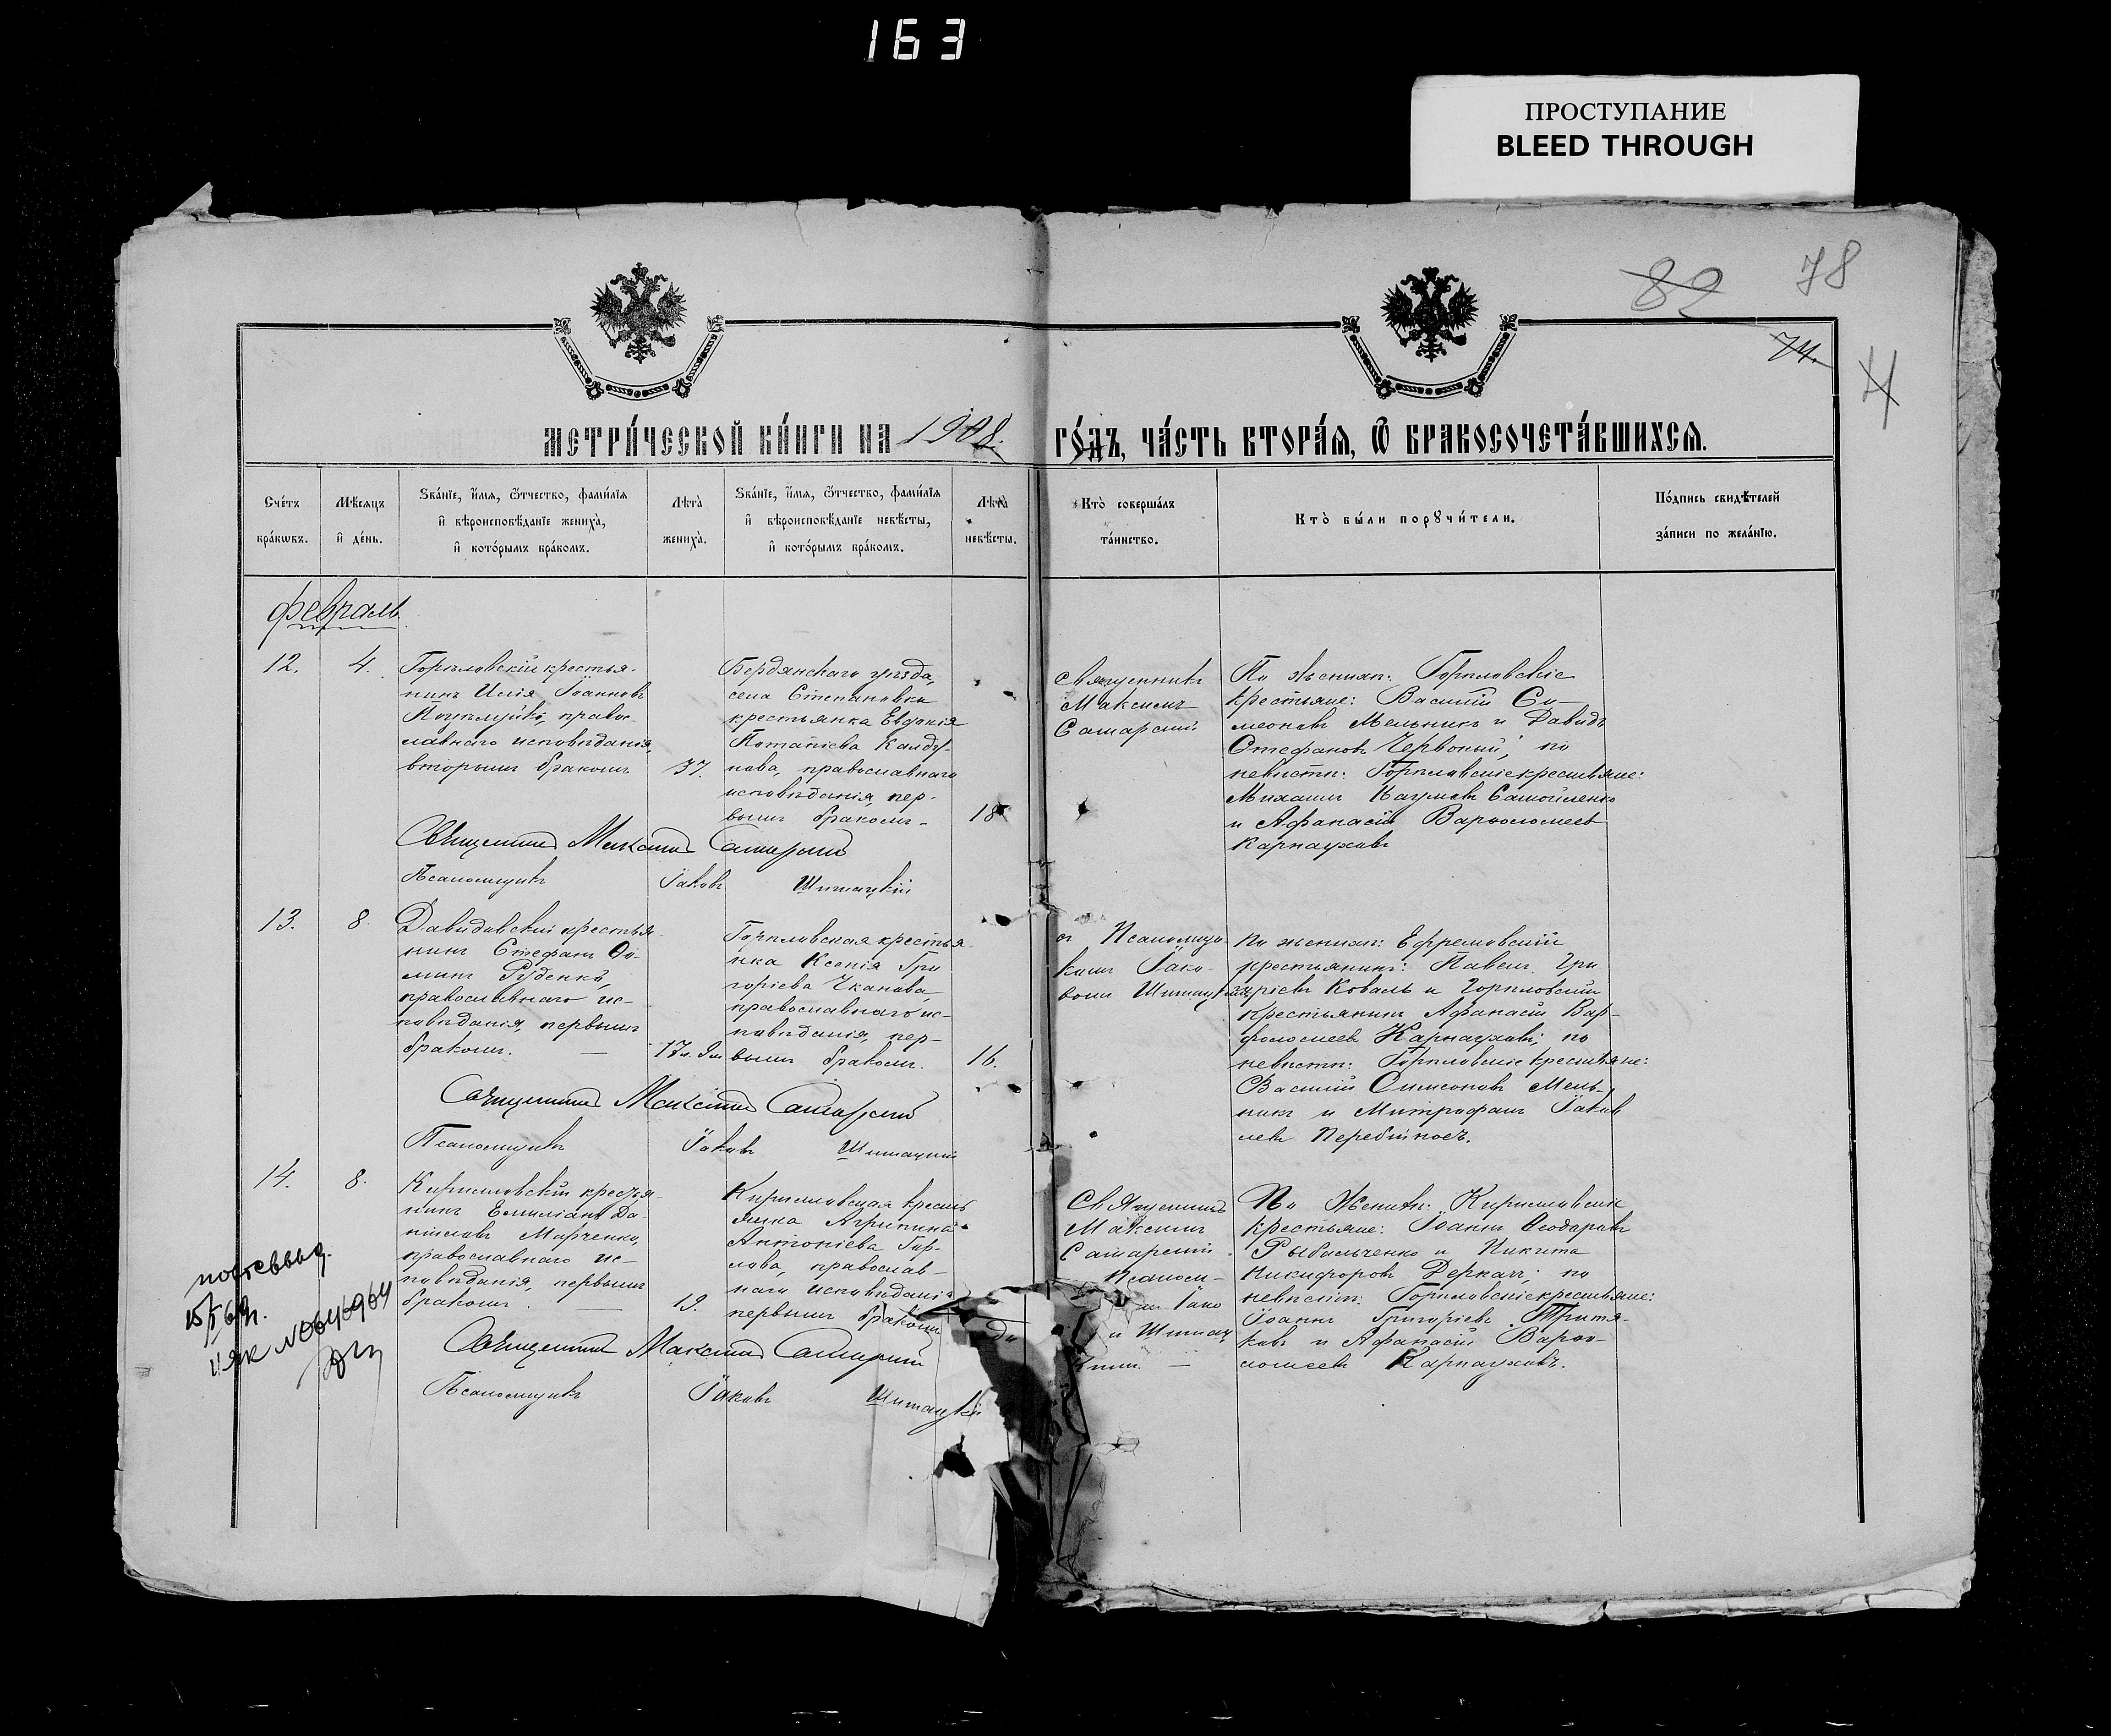 163
ПРОСТУПАНИЕ
BLEED THROUGH
82 78
74.
МЕТРИ́ЧЕСКОЙ КНИ́ГИ НА 1908. ГО́ДЪ, ЧА́СТЬ ВТОРА́Я, Ѿ БРАКОСОЧЕТА́ВШИХСЯ.
Сче́тъ
бра́кѡвъ.
Мѣ́сяцъ
и҆ де́нь.
Ѕва́нїе, и҆́мя, ѻ҆́тчество, фами́лїя
и҆ вѣроисповѣ́данїе жениха̀,
и҆ кото́рымъ бра́комъ.
Лѣта̀
жениха̀.
Ѕва́нїе, и҆́мя, ѻ҆́тчество, фами́лїя
и҆ вѣроисповѣ́данїе невѣ́сты,
и҆ кото́рымъ бра́комъ.
Лѣта̀
невѣ́сты.
Кто̀ соверша́лъ
та́инство.
Кто̀ бы́ли порꙋчи́тели.
По́дпись свидѣ́телей
за́писи по жела́нїю.
февраль.
12.
4.
Горѣловскій крестья-
нинъ Илія Іоанновъ
Поцѣлуйко, правос-
лавнаго исповѣданія,
вторымъ бракомъ
37.
Бердянскаго уѣзда,
села Степановки
крестьянка Евдокія
Потапіева Калду-
нова, православнаго
исповѣданія, пер-
вымъ бракомъ-
18
Священникъ
Максимъ
Самарскій
По женихѣ: Горѣловскіе
крестьяне: Василій Си-
меоновъ Мельникъ и Давидъ
Стефановъ Червоный; по
невѣстѣ: Горѣловскіе крестьяне:
Михаилъ Наумовъ Самойленко
и Афанасій Варѳоломеевъ
Карнауховъ
Священникъ Максимъ Самарскій
Псаломщикъ Іаковъ Шитацкій
13.
8.
Давидовскій крестья-
нинъ Стефанъ Ѳо-
минъ Руденко,
православнаго ис-
повѣданія, первымъ
бракомъ. —
17л. 9м.
Горѣловская крестья-
нка Ксенія Гри
горіева Чканова,
православнаго ис-
повѣданія, пер-
вымъ бракомъ.
16.
съ Псаломщи-
комъ Іако-
вомъ Шитацкимъ
По женихѣ: Ефремовскій
крестьянинъ: Павелъ Гри
горіевъ Коваль и Горѣловскій
крестьянинъ Афанасій Вар-
фоломеевъ Карнауховъ; по
невѣстѣ: Горѣловскіе крестьяне:
Василій Симеоновъ Мель-
никъ и Митрофанъ Іаков
левъ Перебийносъ.
Священникъ Максимъ Самарскій
Псаломщикъ Іаковъ Шитацкій
14.
8.
Кирилловскій крестья-
нинъ Емиліанъ Да-
ніиловъ Марченко,
православнаго ис-
повѣданія, первымъ
бракомъ. —
19.
Кирилловская кресть
янка Агрипина
Антоніева Гор-
лова, православ-
наго исповѣданія
первымъ бракомъ
Священникъ
Максимъ
Самарскій
Псалом-
Іако
и Шитац
кимъ. —
По женихѣ: Кирилловскіе
крестьяне: Іоаннъ Ѳеодоровъ
Рыбальченко и Никита
Никифоровъ Деркачъ; по
невѣстѣ: Горѣловскіе крестьяне:
Іоаннъ Григоріевъ Третя-
ковъ и Афанасій Варѳо-
ломеевъ Карнауховъ.
Священникъ Максимъ Самарскій
Псаломщикъ Іаковъ Шитацкій